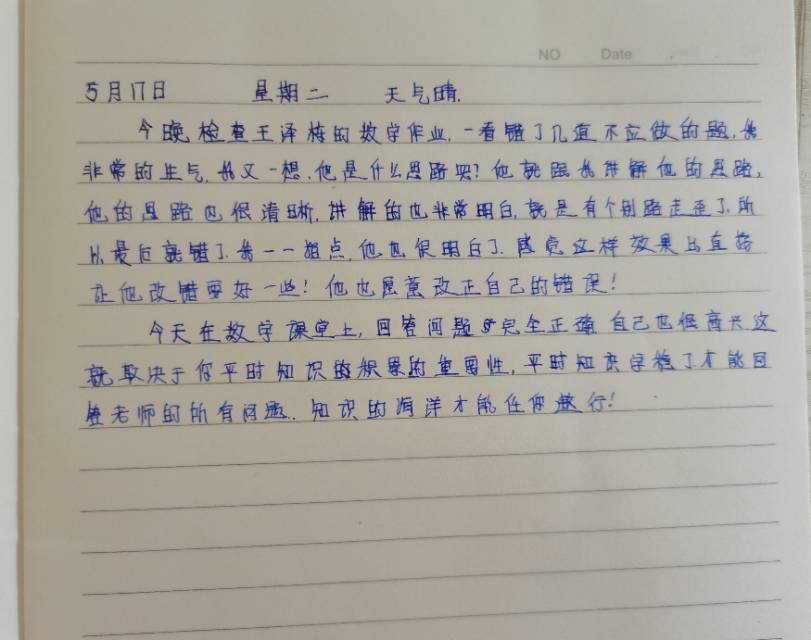 NO Date
5月17日 星期二 天气晴.
今晚检查王泽梅的数学作业.一看错了几道不应做的题,我
非常的生气.我又一想.他是什么思路呢?他就跟我讲解他的思路,
他的思路也很清晰,讲解的也非常明白,就是有个别路走歪了.所
以最后就错了.我一一指点,他也很明白了.感觉这样效果比直接
让他改错要好一些!他也愿意改正自己的错误!
今天在数学课堂上,回答问题完全正确 自己也很高兴这
就取决于你平时知识的积累的重要性,平时知识学稳了才能回
答老师的所有问题.知识的海洋才能任你遨行!